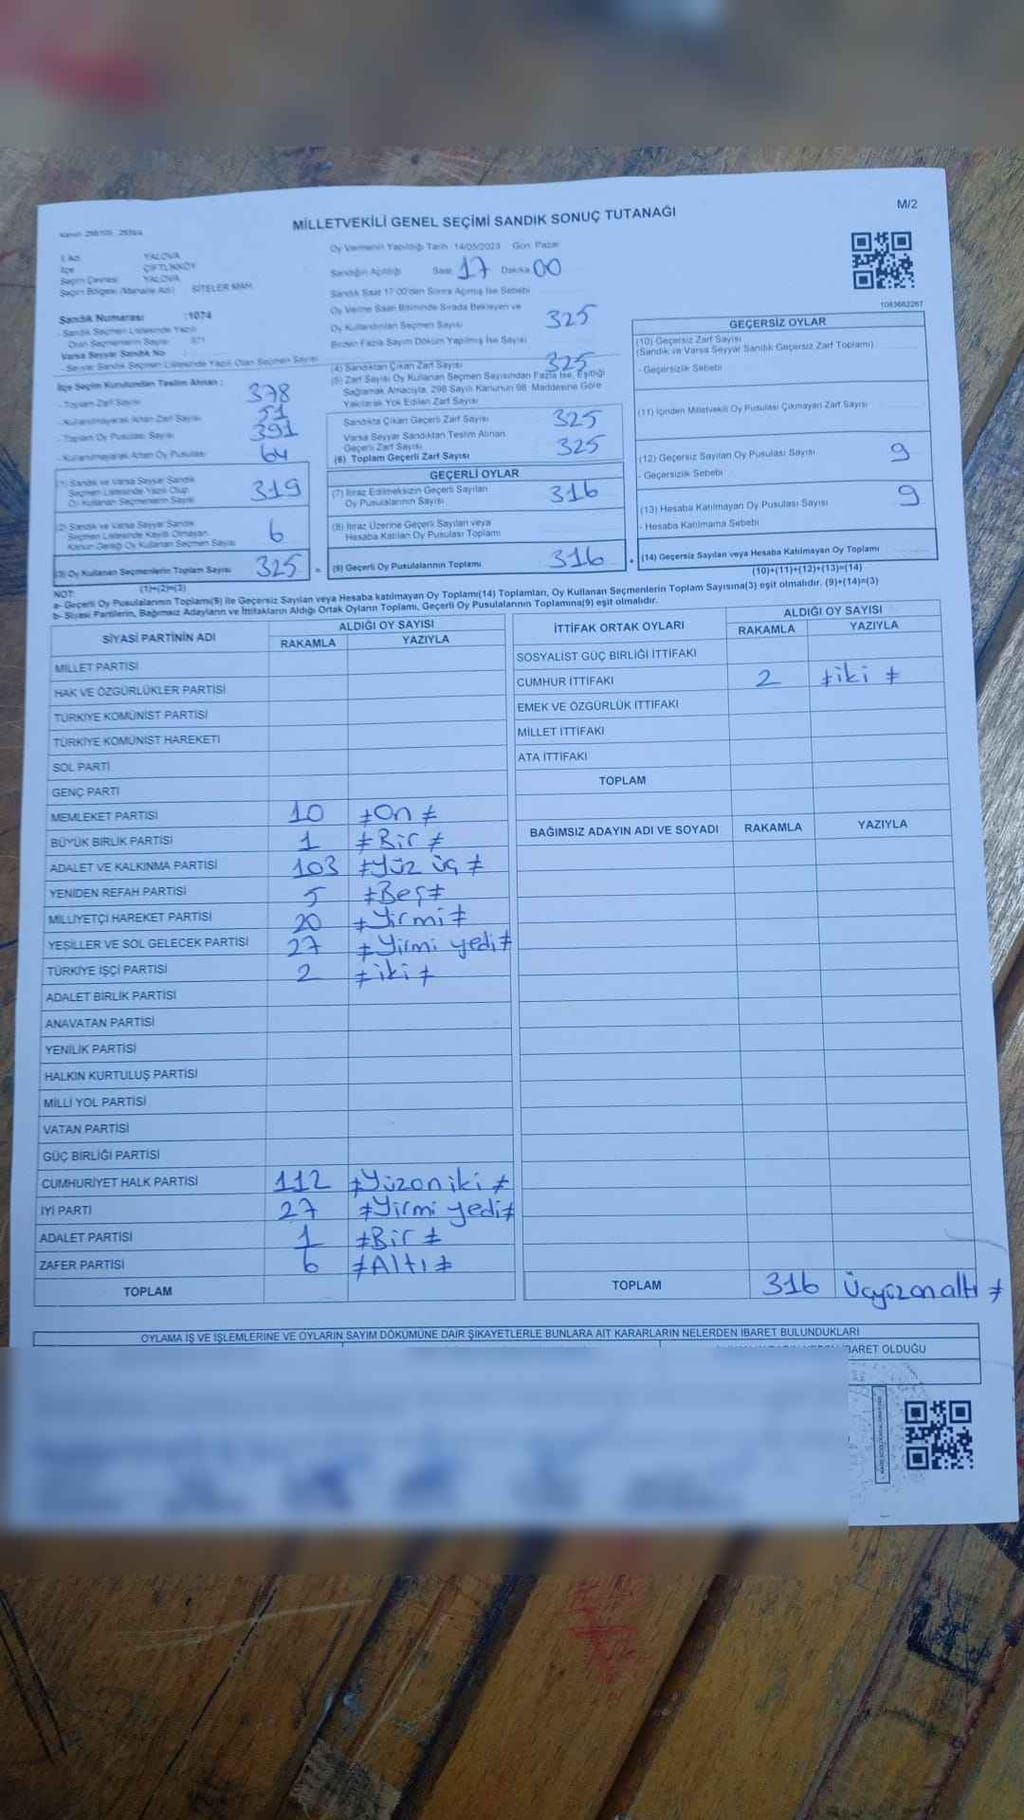 M/2
MİLLETVEKİLİ GENEL SEÇİMİ SANDIK SONUÇ TUTANAĞI
İl Adı YALOVA
İlçe ÇİFTLİKKÖY
Seçim Çevresi YALOVA
Seçim Bölgesi (Mahalle Adı) SİTELER MAH.
Sandık Numarası :1074
- Sandık Seçmen Listesinde Yazılı
Olan Seçmenlerin Sayısı 371
Varsa Seyyar Sandık No
- Seyyar Sandık Seçmen Listesinde Yazılı Olan Seçmen Sayısı
İlçe Seçim Kurulundan Teslim Alınan :
- Toplam Zarf Sayısı 378
- Kullanılmayarak Artan Zarf Sayısı 51
- Toplam Oy Pusulası Sayısı 391
- Kullanılmayarak Artan Oy Pusulası 64
(1) Sandık ve Varsa Seyyar Sandık
Seçmen Listesinde Yazılı Olup
Oy Kullanan Seçmenlerin Sayısı 319
(2) Sandık ve Varsa Seyyar Sandık
Seçmen Listesinde Kayıtlı Olmayan
Kanun Gereği Oy Kullanan Seçmen Sayısı 6
(3) Oy Kullanan Seçmenlerin Toplam Sayısı 325 =
(1)+(2)=(3)
Oy Vermenin Yapıldığı Tarih : 14/05/2023 Gün: Pazar
Sandığın Açıldığı Saat 17 Dakika 00
Sandık Saat 17:00'den Sonra Açılmış İse Sebebi
Oy Verme Saati Bitiminde Sırada Bekleyen ve
Oy Kullandırılan Seçmen Sayısı 325
Birden Fazla Sayım Döküm Yapılmış İse Sayısı
(4) Sandıktan Çıkan Zarf Sayısı 325
(5) Zarf Sayısı Oy Kullanan Seçmen Sayısından Fazla İse, Eşitliği
Sağlamak Amacıyla, 298 Sayılı Kanunun 98. Maddesine Göre
Yakılarak Yok Edilen Zarf Sayısı
Sandıkta Çıkan Geçerli Zarf Sayısı 325
Varsa Seyyar Sandıktan Teslim Alınan
Geçerli Zarf Sayısı
(6) Toplam Geçerli Zarf Sayısı 325
GEÇERLİ OYLAR
(7) İtiraz Edilmeksizin Geçerli Sayılan
Oy Pusulalarının Sayısı 316
(8) İtiraz Üzerine Geçerli Sayılan veya
Hesaba Katılan Oy Pusulası Toplamı
(9) Geçerli Oy Pusulalarının Toplamı 316 +
1083662267
GEÇERSİZ OYLAR
(10) Geçersiz Zarf Sayısı
(Sandık ve Varsa Seyyar Sandık Geçersiz Zarf Toplamı)
- Geçersizlik Sebebi
(11) İçinden Milletvekili Oy Pusulası Çıkmayan Zarf Sayısı
(12) Geçersiz Sayılan Oy Pusulası Sayısı 9
- Geçersizlik Sebebi
(13) Hesaba Katılmayan Oy Pusulası Sayısı 9
- Hesaba Katılmama Sebebi
(14) Geçersiz Sayılan veya Hesaba Katılmayan Oy Toplamı
(10)+(11)+(12)+(13)=(14)
NOT:
a- Geçerli Oy Pusulalarının Toplamı(9) ile Geçersiz Sayılan veya Hesaba katılmayan Oy Toplamı(14) Toplamları, Oy Kullanan Seçmenlerin Toplam Sayısına(3) eşit olmalıdır. (9)+(14)=(3)
b- Siyasi Partilerin, Bağımsız Adayların ve İttifakların Aldığı Ortak Oyların Toplamı, Geçerli Oy Pusulalarının Toplamına(9) eşit olmalıdır.
SİYASİ PARTİNİN ADI ALDIĞI OY SAYISI
RAKAMLA YAZIYLA
MİLLET PARTİSİ
HAK VE ÖZGÜRLÜKLER PARTİSİ
TÜRKİYE KOMÜNİST PARTİSİ
TÜRKİYE KOMÜNİST HAREKETİ
SOL PARTİ
GENÇ PARTİ
MEMLEKET PARTİSİ 10 ≠On≠
BÜYÜK BİRLİK PARTİSİ 1 ≠Bir≠
ADALET VE KALKINMA PARTİSİ 103 ≠Yüz üç≠
YENİDEN REFAH PARTİSİ 5 ≠Beş≠
MİLLİYETÇİ HAREKET PARTİSİ 20 ≠Yirmi≠
YEŞİLLER VE SOL GELECEK PARTİSİ 27 ≠Yirmi yedi≠
TÜRKİYE İŞÇİ PARTİSİ 2 ≠iki≠
ADALET BİRLİK PARTİSİ
ANAVATAN PARTİSİ
YENİLİK PARTİSİ
HALKIN KURTULUŞ PARTİSİ
MİLLİ YOL PARTİSİ
VATAN PARTİSİ
GÜÇ BİRLİĞİ PARTİSİ
CUMHURİYET HALK PARTİSİ 112 ≠Yüzoniki≠
İYİ PARTİ 27 ≠Yirmi yedi≠
ADALET PARTİSİ 1 ≠Bir≠
ZAFER PARTİSİ 6 ≠Altı≠
TOPLAM
İTTİFAK ORTAK OYLARI ALDIĞI OY SAYISI
RAKAMLA YAZIYLA
SOSYALİST GÜÇ BİRLİĞİ İTTİFAKI
CUMHUR İTTİFAKI 2 ≠iki≠
EMEK VE ÖZGÜRLÜK İTTİFAKI
MİLLET İTTİFAKI
ATA İTTİFAKI
TOPLAM
BAĞIMSIZ ADAYIN ADI VE SOYADI RAKAMLA YAZIYLA
TOPLAM 316 Üçyüzonaltı≠
OYLAMA İŞ VE İŞLEMLERİNE VE OYLARIN SAYIM DÖKÜMÜNE DAİR ŞİKAYETLERLE BUNLARA AİT KARARLARIN NELERDEN İBARET BULUNDUKLARI
BARET OLDUĞU